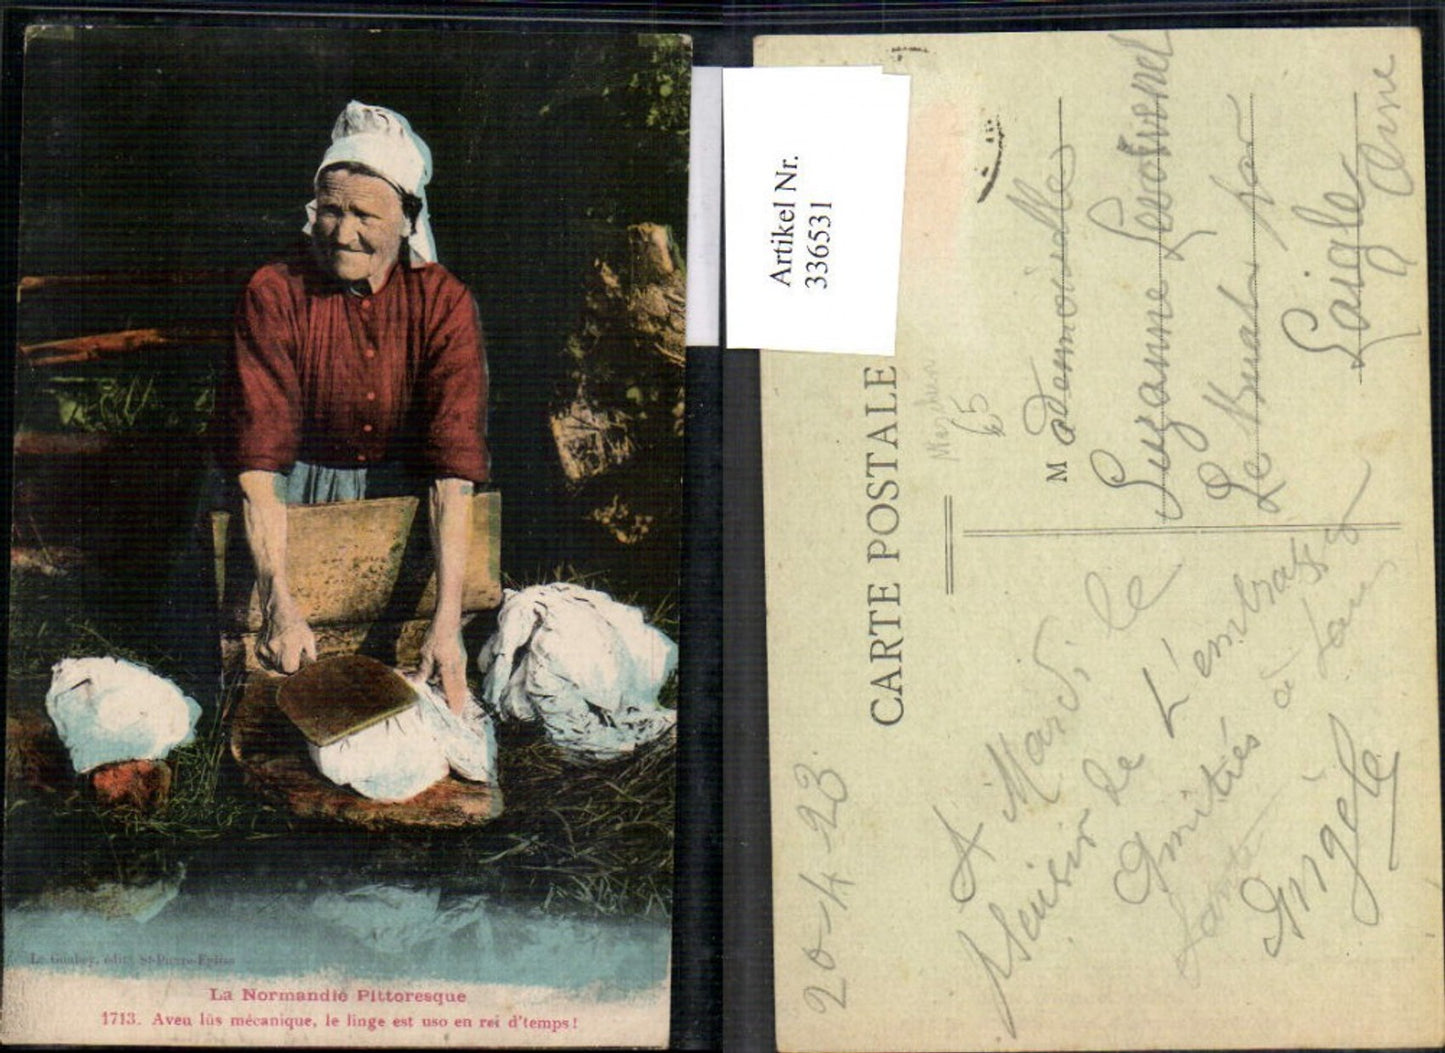 Le Goubey, édit. St-Pierre-Eglise
La Normandie Pittoresque
1713. Aveu lüs mécanique, le linge est uso en rei d'temps!
Artikel Nr.
336531
CARTE POSTALE
65
Mademoiselle
Suzanne
Le Bual par
Laigle
Orne
20-4-23
A Mardi le
plaisir de t'embrasser
Amitiés à tous
Santé
Angèle